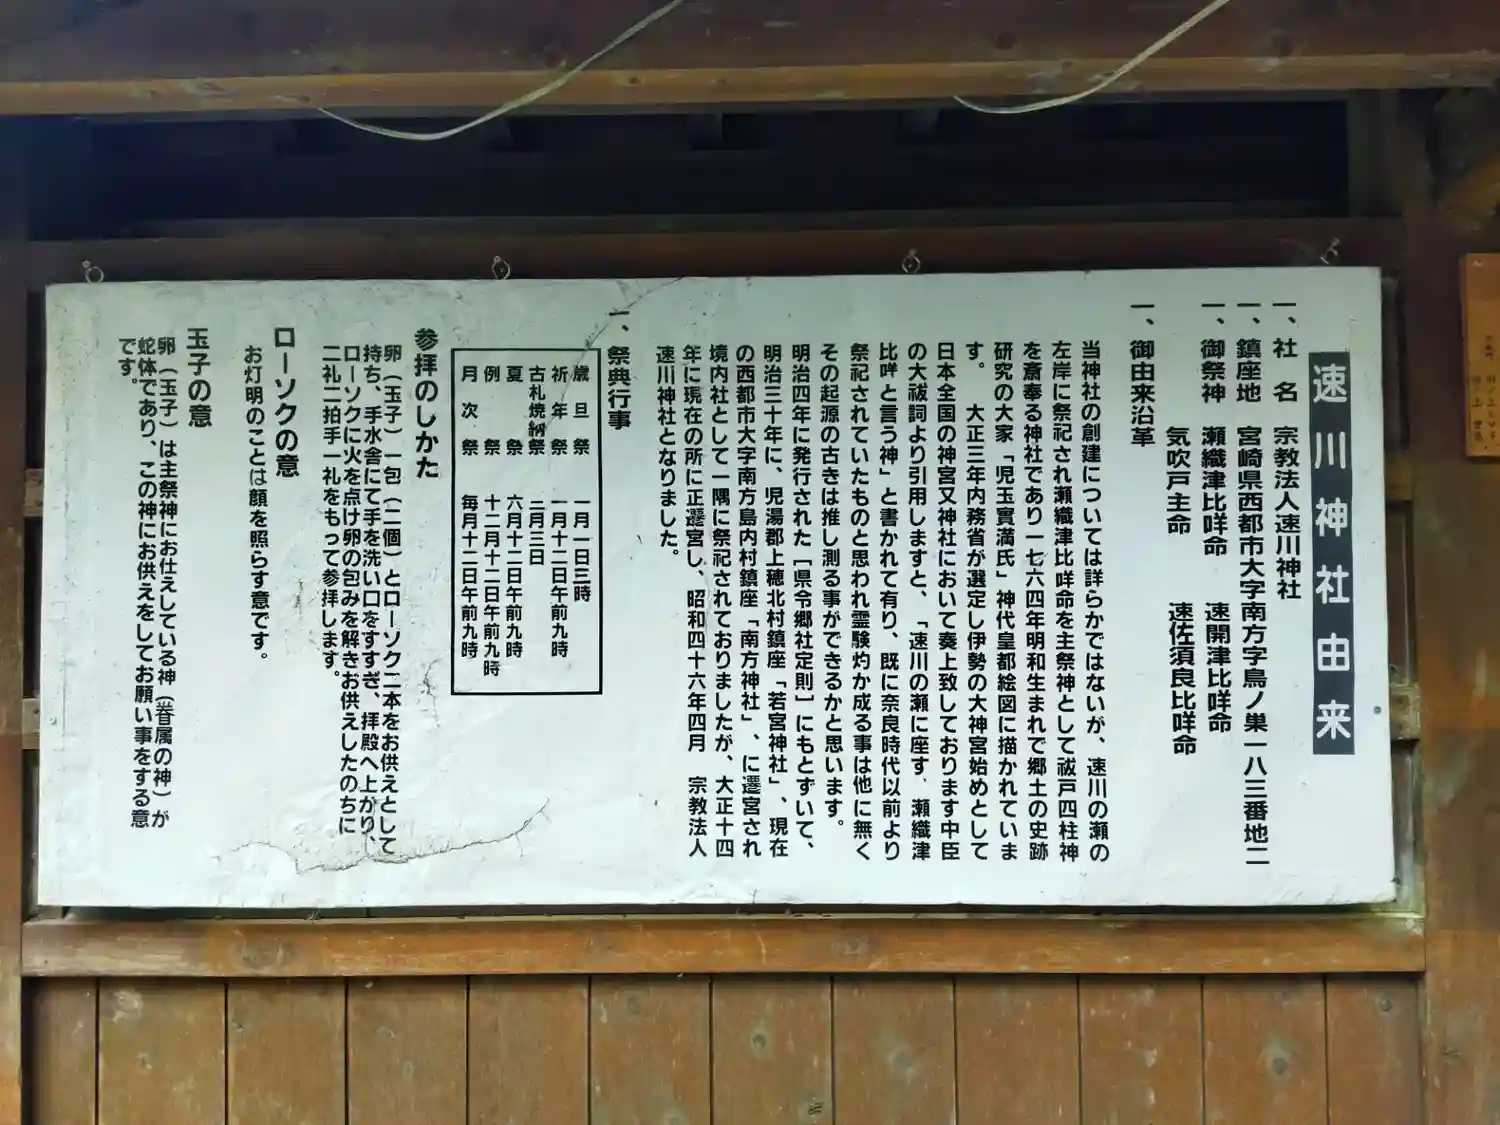 速川神社由来
一、社　名　宗教法人速川神社
一、鎮座地　宮崎県西都市大字南方字鳥ノ巣一八三番地二
一、御祭神　瀬織津比咩命　速開津比咩命
気吹戸主命　速佐須良比咩命
一、御由来沿革
当神社の創建については詳らかではないが、速川の瀬の
左岸に祭祀され瀬織津比咩命を主祭神として祓戸四柱神
を斎奉る神社であり一七六四年明和生まれで郷土の史跡
研究の大家「児玉實満氏」神代皇都絵図に描かれていま
す。　大正三年内務省が選定し伊勢の大神宮始めとして
日本全国の神宮又神社において奏上致しております中臣
の大祓詞より引用しますと、「速川の瀬に座す、瀬織津
比咩と言う神」と書かれて有り、既に奈良時代以前より
祭祀されていたものと思われ霊験灼か成る事は他に無く
その起源の古きは推し測る事ができるかと思います。
明治四年に発行された「県令郷社定則」にもとずいて、
明治三十年に、児湯郡上穂北村鎮座「若宮神社」、現在
の西都市大字南方島内村鎮座「南方神社」、に遷宮され
境内社として一隅に祭祀されておりましたが、大正十四
年に現在の所に正遷宮し、昭和四十六年四月　宗教法人
速川神社となりました。
一、祭典行事
歳旦祭　一月一日三時
祈年祭　一月十二日午前九時
古札焼納祭　二月三日
夏祭　六月十二日午前九時
例祭　十二月十二日午前九時
月次祭　毎月十二日午前九時
参拝のしかた
卵（玉子）一包（二個）とローソク二本をお供えとして
持ち、手水舎にて手を洗い口をすすぎ、拝殿へ上がり、
ローソクに火を点け卵の包みを解きお供えしたのちに
二礼二拍手一礼をもって参拝します。
ローソクの意
お灯明のことは顔を照らす意です。
玉子の意
卵（玉子）は主祭神にお仕えしている神（眷属の神）が
蛇体であり、この神にお供えをしてお願い事をする意
です。